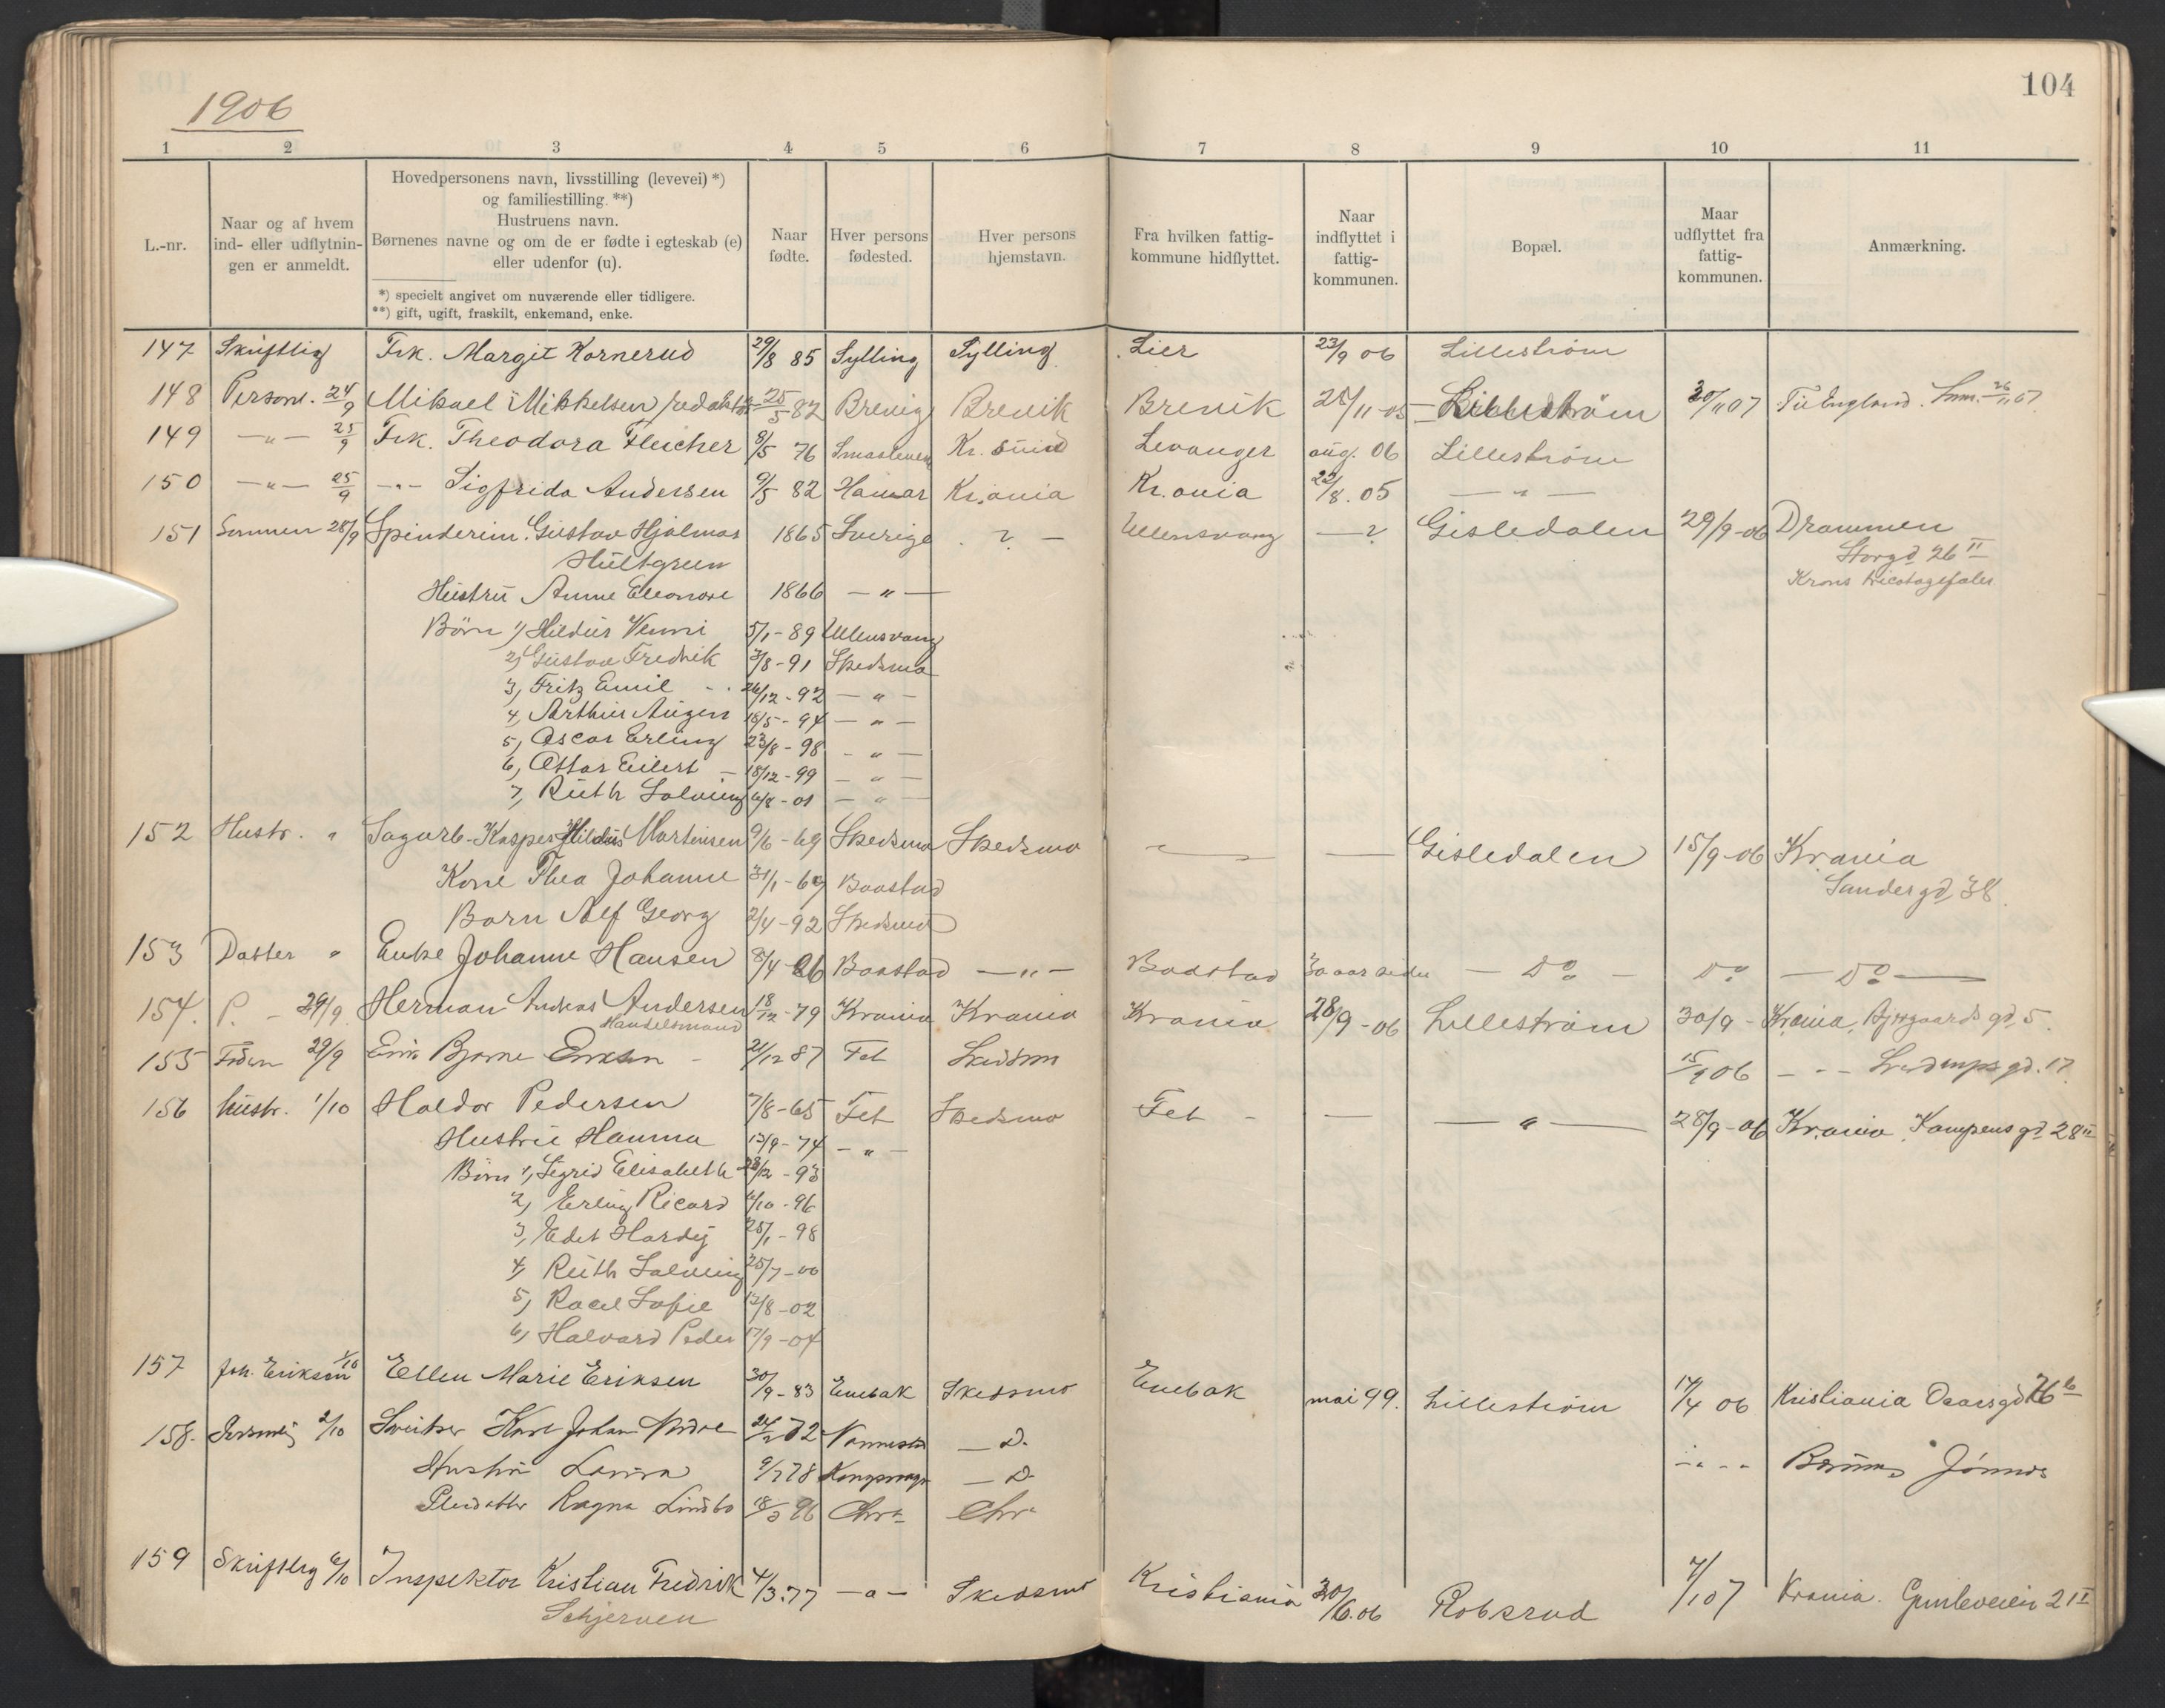 104
1906
1 2 3 4 5 6 7 8 9 10 11
L.-nr.
Naar og af hvem
ind- eller udflytnin-
gen er anmeldt.
Hovedpersonens navn, livsstilling (levevei) *)
og familiestilling. **)
Hustruens navn.
Børnenes navne og om de er fødte i egteskab (e)
eller udenfor (u).
*) specielt angivet om nuværende eller tidligere.
**) gift, ugift, fraskilt, enkemand, enke.
Naar
fødte.
Hver persons
fødested.
Hver persons
hjemstavn.
Fra hvilken fattig-
kommune hidflyttet.
Naar
indflyttet i
fattig-
kommunen.
Bopæl.
Maar
udflyttet fra
fattig-
kommunen.
Anmærkning.
147 Skriftlig Frk. Margit Kornerud 29/8 85 Sylling Sylling Lier 23/9 06 Lillestrøm
148 Person. 24/9 Mikael Mikkelsen, redaktør 25/5 82 Brevig Brevik Brevik 28/11-05 Lillestrøm 30/11 07 Til England. 26/11 07
149 -"- 25/9 Frk. Theodora Fleicher 8/5 76 Smaalenene Kr. sund Levanger aug. 06 Lillestrøm
150 -"- 25/9 -"- Sigfrida Andersen 9/5 82 Hamar Kr.ania Kr.ania 22/8. 05 -"-
151 Sønnen 28/9 Spinderim. Gustav Hjalmar 1865 Sverige ? - Ullensvang - ? Gisledalen 29/9-06 Drammen
Hultgreen Storgd 26 II
Hustru Anne Eleonore 1866 -"- Krons tricotagefabr
Børn 1) Hildur Venni 5/1-89 Ullensvang
2) Gustav Fredrik 3/8-91 Skedsmo
3, Fritz Emil 26/12-92 -"-
4, Arthur August 18/5-94 -"-
5, Oscar Erling 23/8-98 -"-
6, Ottar Eilert 18/12-99 -"-
7, Ruth Solveig 6/8-01 -"-
152 Hustr. " Sagarb. Kasper Hildus Martinsen 9/6-69 Skedsmo Skedsmo - - Gisledalen 15/9-06 Krania
Kone Thea Johanne 31/1-69 Baastad Sandergd 38.
Barn Alf Georg 2/4-92 Skedsmo
153 Datter " Enke Johanne Hansen 8/4-26 Baastad -"- Baastad 30 aar siden - Do - Do - Do -
154. P. - 29/9 Herman Andreas Andersen 18/12-79 Krania Krania Krania 28/9-06 Lillestrøm 30/9- Krania, gd, 5.
Handelsmand
155 Faderen 29/9 Bjarne Eriksen 21/12 87 Fet Skedsmo 15/9 06 -"- gd. 17
156 hustr. 1/10 Haldor Pedersen 7/8-65 Fet Skedsmo Fet - - -"- 28/9-06 Kr.ania Kampens gd 28 II
Hustru Hanna 12/9-74 -"-
Børn 1, Sigrid Elisabeth 28/12-93
2, Erling Ricard 4/10-96
3, Edit Hardij 25/1-98
4, Ruth Solveig 25/7-00
5, Racel Sofie 12/8-02
6, Halvard Peder 17/9-04
157 Joh. Eriksen 1/10 Ellen Marie Eriksen 30/9-83 Enebak Skedsmo Enebak mai 99. Lillestrøm 17/4 06 Kristiania
158. Personlig 2/10 Sveitser Karl Johan 24/2 72 Nannestad - D. -"- Bærum
Hustru Lovisa 9/7 78 Kongsvinger - D.
Pleidatter Ragna Lindbo 18/3 96 Chra Chra
159 Skriftlig 6/10 Inspektør Kristian Fredrik 4/3.77 -"- Skedsmo Kristiania 30/6.06 Robsrud 7/1 07 Krania. Gimleveien 2 II
Schjerven